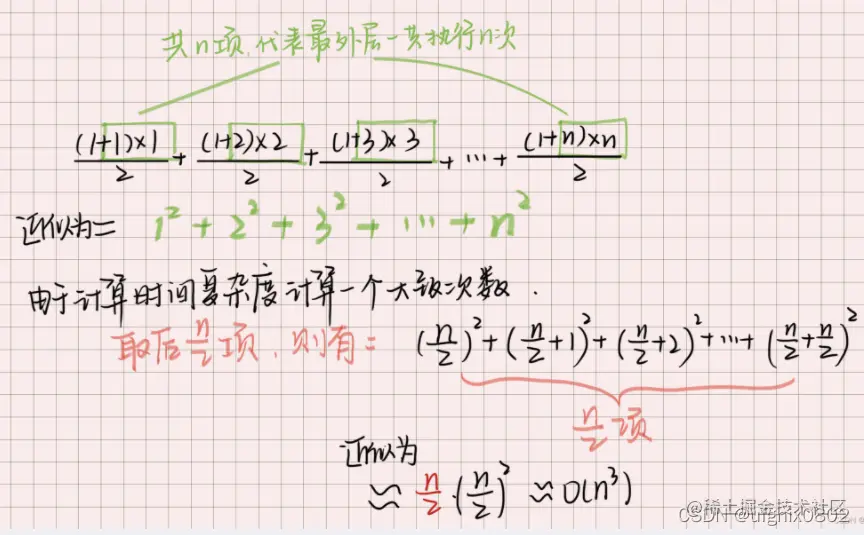 共n项,代表最外层一共执行n次
(1+1)×1/2 + (1+2)×2/2 + (1+3)×3/2 + ... + (1+n)×n/2
近似为= 1² + 2² + 3² + ... + n²
由于计算时间复杂度计算一个大致次数.
取后n/2项,则有= (n/2)² + (n/2+1)² + (n/2+2)² + ... + (n/2+n/2)²
n/2项
近似为
≈ n/2·(n/2)² ≈ O(n³)
@稀土掘金技术社区